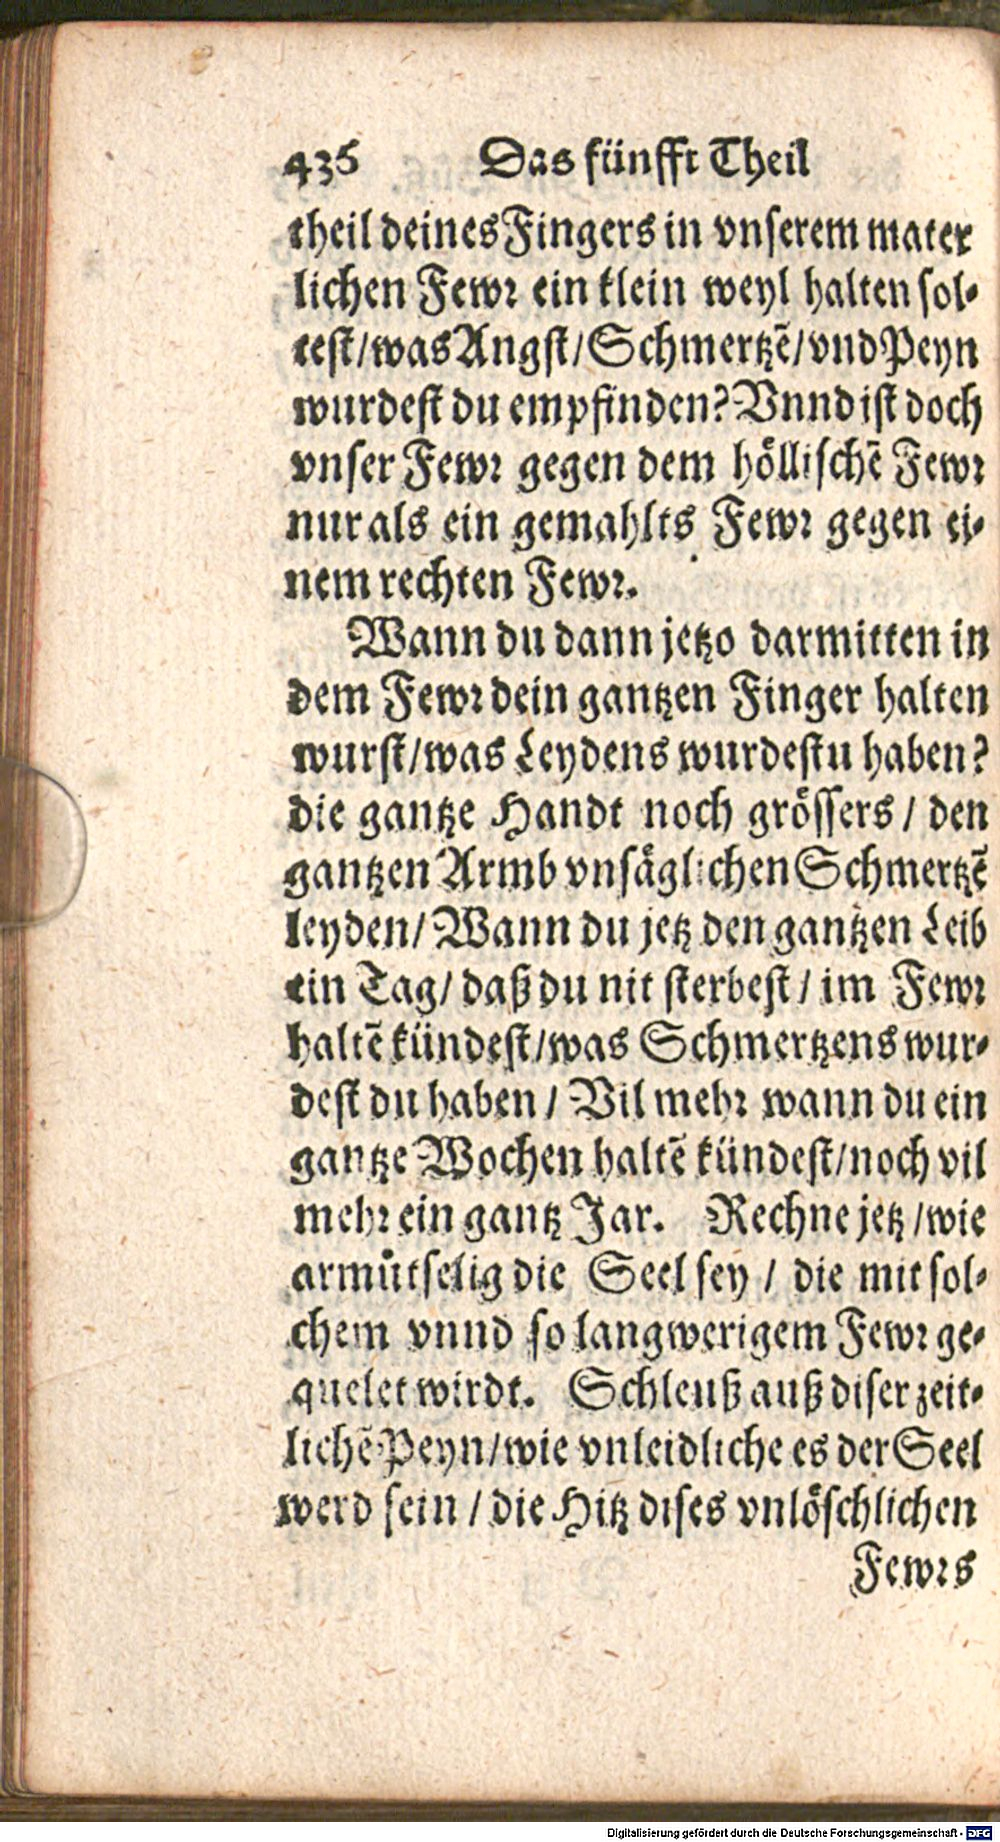 436 Das fünfft Theil
theil deines Fingers in vnserem mater
lichen Fewr ein klein weyl halten sol-
test/was Angst/Schmertzē/vnd Peyn
wurdest du empfinden? Vnnd ist doch
vnser Fewr gegen dem höllischē Fewr
nur als ein gemahlts Fewr gegen ei-
nem rechten Fewr.
Wann du dann jetzo darmitten in
dem Fewr dein gantzen Finger halten
wurst/was Leydens wurdestu haben?
die gantze Handt noch grössers / den
gantzen Armb vnsäglichen Schmertzē
leyden/ Wann du jetz den gantzen Leib
ein Tag/ daß du nit sterbest / im Fewr
haltē kündest/was Schmertzens wur-
dest du haben / Vil mehr wann du ein
gantze Wochen haltē kündest/noch vil
mehr ein gantz Jar. Rechne jetz /wie
armůtselig die Seel sey / die mit sol-
chem vnnd so langwerigem Fewr ge-
quelet wirdt. Schleuß auß diser zeit-
lichē Peyn/wie vnleidliche es der Seel
werd sein / die Hitz dises vnlöschlichen
Fewrs
Digitalisierung gefördert durch die Deutsche Forschungsgemeinschaft - DFG